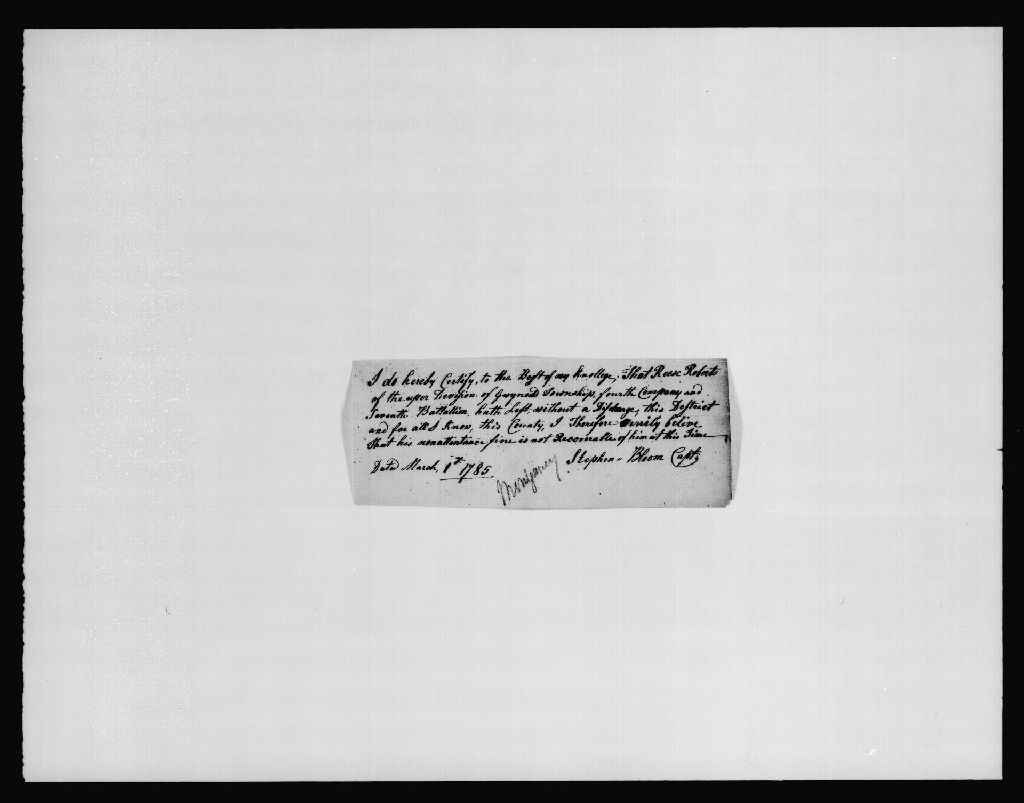 I do hereby Certify, to the Best of my Knollege, That Reese Roberts
of the uper Devision of Gwynedd Township, fourth Company and
Seventh Battallion hath Left without a Discharge, this Destrict
and for all I Know, this County, I Therefore verily belive
that his nonattentance fine is not Recoverable of him at this Time
Dated March, 1st 1785
Stephen Bloom Capt
Montgomery